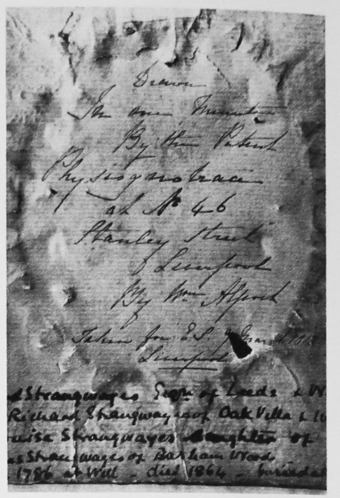 Drawn
In one Minute
By the Patent
Physiognotrace
at No 46
Stanley Street
Liverpool
By Wm Alport
Taken for E S
Liverpool
Strangways Esqr of Leeds &
Richard Strangways of Oak Villa &
Strangwayes daughter of
Strangwayes of Barham Wood
1786 at Well died 1864 buried at